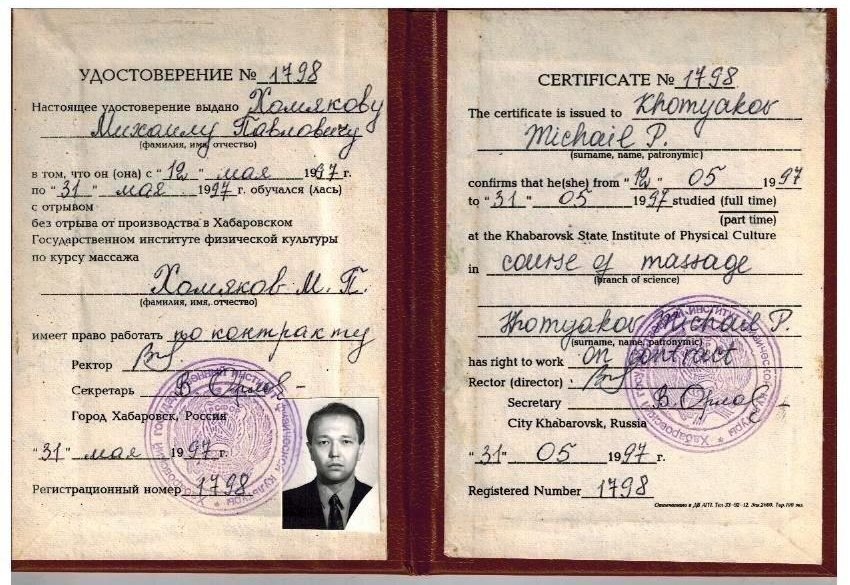 УДОСТОВЕРЕНИЕ № 1798
Настоящее удостоверение выдано Хомякову
Михаилу Павловичу
(фамилия, имя, отчество)
в том, что он (она) с "12" мая 1997 г.
по "31" мая 1997 г. обучался (лась)
с отрывом
без отрыва от производства в Хабаровском
Государственном институте физической культуры
по курсу массажа
Хомяков М. П.
(фамилия, имя, отчество)
имеет право работать по контракту
Ректор
Секретарь В. Орлов
Город Хабаровск, Россия
"31" мая 1997 г.
Регистрационный номер 1798
CERTIFICATE № 1798
The certificate is issued to Khomyakov
Michail P.
(surname, name, patronymic)
confirms that he(she) from "12" 05 1997
to "31" 05 1997 studied (full time)
(part time)
at the Khabarovsk State Institute of Physical Culture
in course of massage
(branch of science)
Khomyakov Michail P.
(surname, name, patronymic)
has right to work on contract
Rector (director)
Secretary В. Орлов
City Khabarovsk, Russia
"31" 05 1997 г.
Registered Number 1798